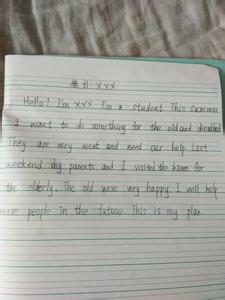 题目: XXX
Hello! I'm XXX I'm a student This summer
I want to do something for the old and disabled
They are very weak and need our help Last
weekend, my parents and I visited the home for
the elderly. The old were very happy. I will help
more people in the future. This is my plan